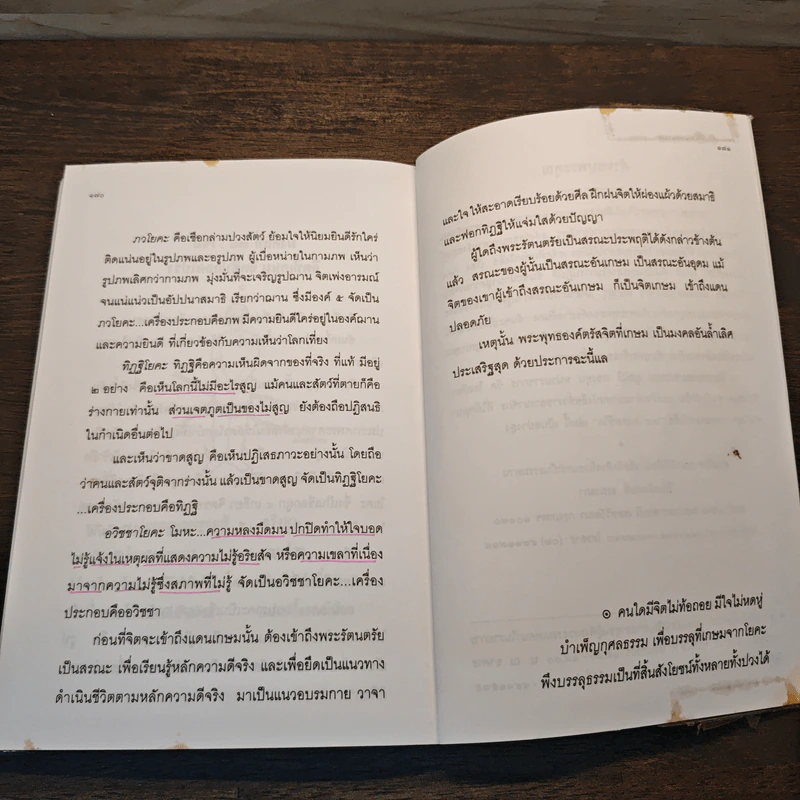 ๑๗๐
ภวโยคะ คือเชือกล่ามปวงสัตว์ ย้อมใจให้นิยมยินดีรักใคร่
ติดแน่นอยู่ในรูปภพและอรูปภพ ผู้เบื่อหน่ายในกามภพ เห็นว่า
รูปภพเลิศกว่ากามภพ มุ่งมั่นที่จะเจริญรูปฌาน จิตเพ่งอารมณ์
จนแน่แน่วเป็นอัปปนาสมาธิ เรียกว่าฌาน ซึ่งมีองค์ ๕ จัดเป็น
ภวโยคะ...เครื่องประกอบคือภพ มีความยินดีใคร่อยู่ในองค์ฌาน
และความยินดี ที่เกี่ยวข้องกับความเห็นว่าโลกเที่ยง
ทิฏฐิโยคะ ทิฏฐิคือความเห็นผิดจากของที่จริง ที่แท้ มีอยู่
๒ อย่าง คือเห็นโลกนี้ไม่มีอะไรสูญ แม้คนและสัตว์ที่ตายก็คือ
ร่างกายเท่านั้น ส่วนเจตภูตเป็นของไม่สูญ ยังต้องถือปฏิสนธิ
ในกำเนิดอื่นต่อไป
และเห็นว่าขาดสูญ คือเห็นปฏิเสธภาวะอย่างนั้น โดยถือ
ว่าคนและสัตว์จุติจากร่างนั้น แล้วเป็นขาดสูญ จัดเป็นทิฏฐิโยคะ
...เครื่องประกอบคือทิฏฐิ
อวิชชาโยคะ โมหะ...ความหลงมืดมน ปกปิดทำให้ใจบอด
ไม่รู้แจ้งในเหตุผลที่แสดงความไม่รู้อริยสัจ หรือความเขลาที่เนื่อง
มาจากความไม่รู้ซึ่งสภาพที่ไม่รู้ จัดเป็นอวิชชาโยคะ...เครื่อง
ประกอบคืออวิชชา
ก่อนที่จิตจะเข้าถึงแดนเกษมนั้น ต้องเข้าถึงพระรัตนตรัย
เป็นสรณะ เพื่อเรียนรู้หลักความดีจริง และเพื่อยึดเป็นแนวทาง
ดำเนินชีวิตตามหลักความดีจริง มาเป็นแนวอบรมกาย วาจา
๑๗๑
และใจ ให้สะอาดเรียบร้อยด้วยศีล ฝึกฝนจิตให้ผ่องแผ้วด้วยสมาธิ
และฟอกทิฏฐิให้แจ่มใสด้วยปัญญา
ผู้ใดถึงพระรัตนตรัยเป็นสรณะประพฤติได้ดังกล่าวข้างต้น
แล้ว สรณะของผู้นั้นเป็นสรณะอันเกษม เป็นสรณะอันอุดม แม้
จิตของเขาผู้เข้าถึงสรณะอันเกษม ก็เป็นจิตเกษม เข้าถึงแดน
ปลอดภัย
เหตุนั้น พระพุทธองค์ตรัสจิตที่เกษม เป็นมงคลอันล้ำเลิศ
ประเสริฐสุด ด้วยประการฉะนี้แล
๏ คนใดมีจิตไม่ท้อถอย มีใจไม่หดหู่
บำเพ็ญกุศลธรรม เพื่อบรรลุที่เกษมจากโยคะ
พึงบรรลุธรรมเป็นที่สิ้นสังโยชน์ทั้งหลายทั้งปวงได้